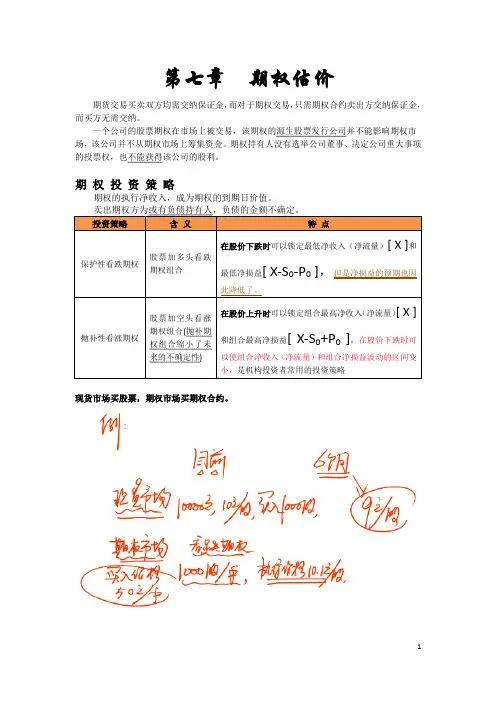 第七章 期权估价
期货交易买卖双方均需交纳保证金,而对于期权交易,只需期权合约卖出方交纳保证金,
而买方无需交纳。
一个公司的股票期权在市场上被交易,该期权的源生股票发行公司并不能影响期权市
场,该公司并不从期权市场上筹集资金。期权持有人没有选举公司董事、决定公司重大事项
的投票权,也不能获得该公司的股利。
期 权 投 资 策 略
期权的执行净收入,成为期权的到期日价值。
卖出期权方为或有负债持有人,负债的金额不确定。
投资策略 含 义 特 点
保护性看跌期权
股票加多头看跌
期权组合
在股价下跌时可以锁定最低净收入(净流量)[ X ]和
最低净损益[ X-S₀-P₀ ],但是净损益的预期也因
此降低了。
抛补性看涨期权
股票加空头看涨
期权组合(抛补期
权组合缩小了未
来的不确定性)
在股价上升时可以锁定组合最高净收入(净流量)[ X ]
和组合最高净损益[ X-S₀+P₀ ],在股价下跌时可
以使组合净收入(净流量)和组合净损益波动的区间变
小,是机构投资者常用的投资策略
现货市场买股票,期权市场买期权合约。
例:
目前 6个月
现货市场 10000元, 10元/股, 买入1000股, 9元/股
期权市场 看跌期权
买入价格 1000股/手, 执行价格10.1元/股
50元/手
1